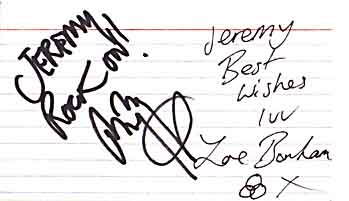 JEREMY
ROCK ON!!
Jeremy
Best
Wishes
luv
Zoe Bonham
X